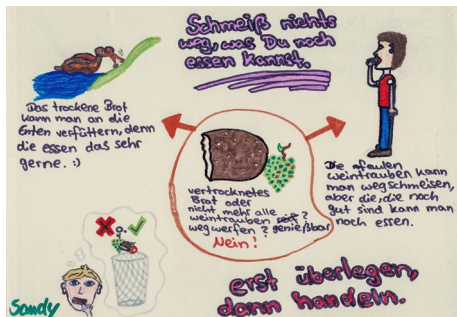 Schmeiß nichts
weg, was Du noch
essen kannst.
Das trockene Brot
kann man an die
Enten verfüttern, denn
die essen das sehr
gerne. :)
vertrocknetes
Brot oder
nicht mehr alle
weintrauben
weg werfen? genießbar?
Nein!
Die faulen
weintrauben kann
man wegschmeisen,
aber die, die noch
gut sind kann man
noch essen.
erst überlegen,
dann handeln.
Sandy